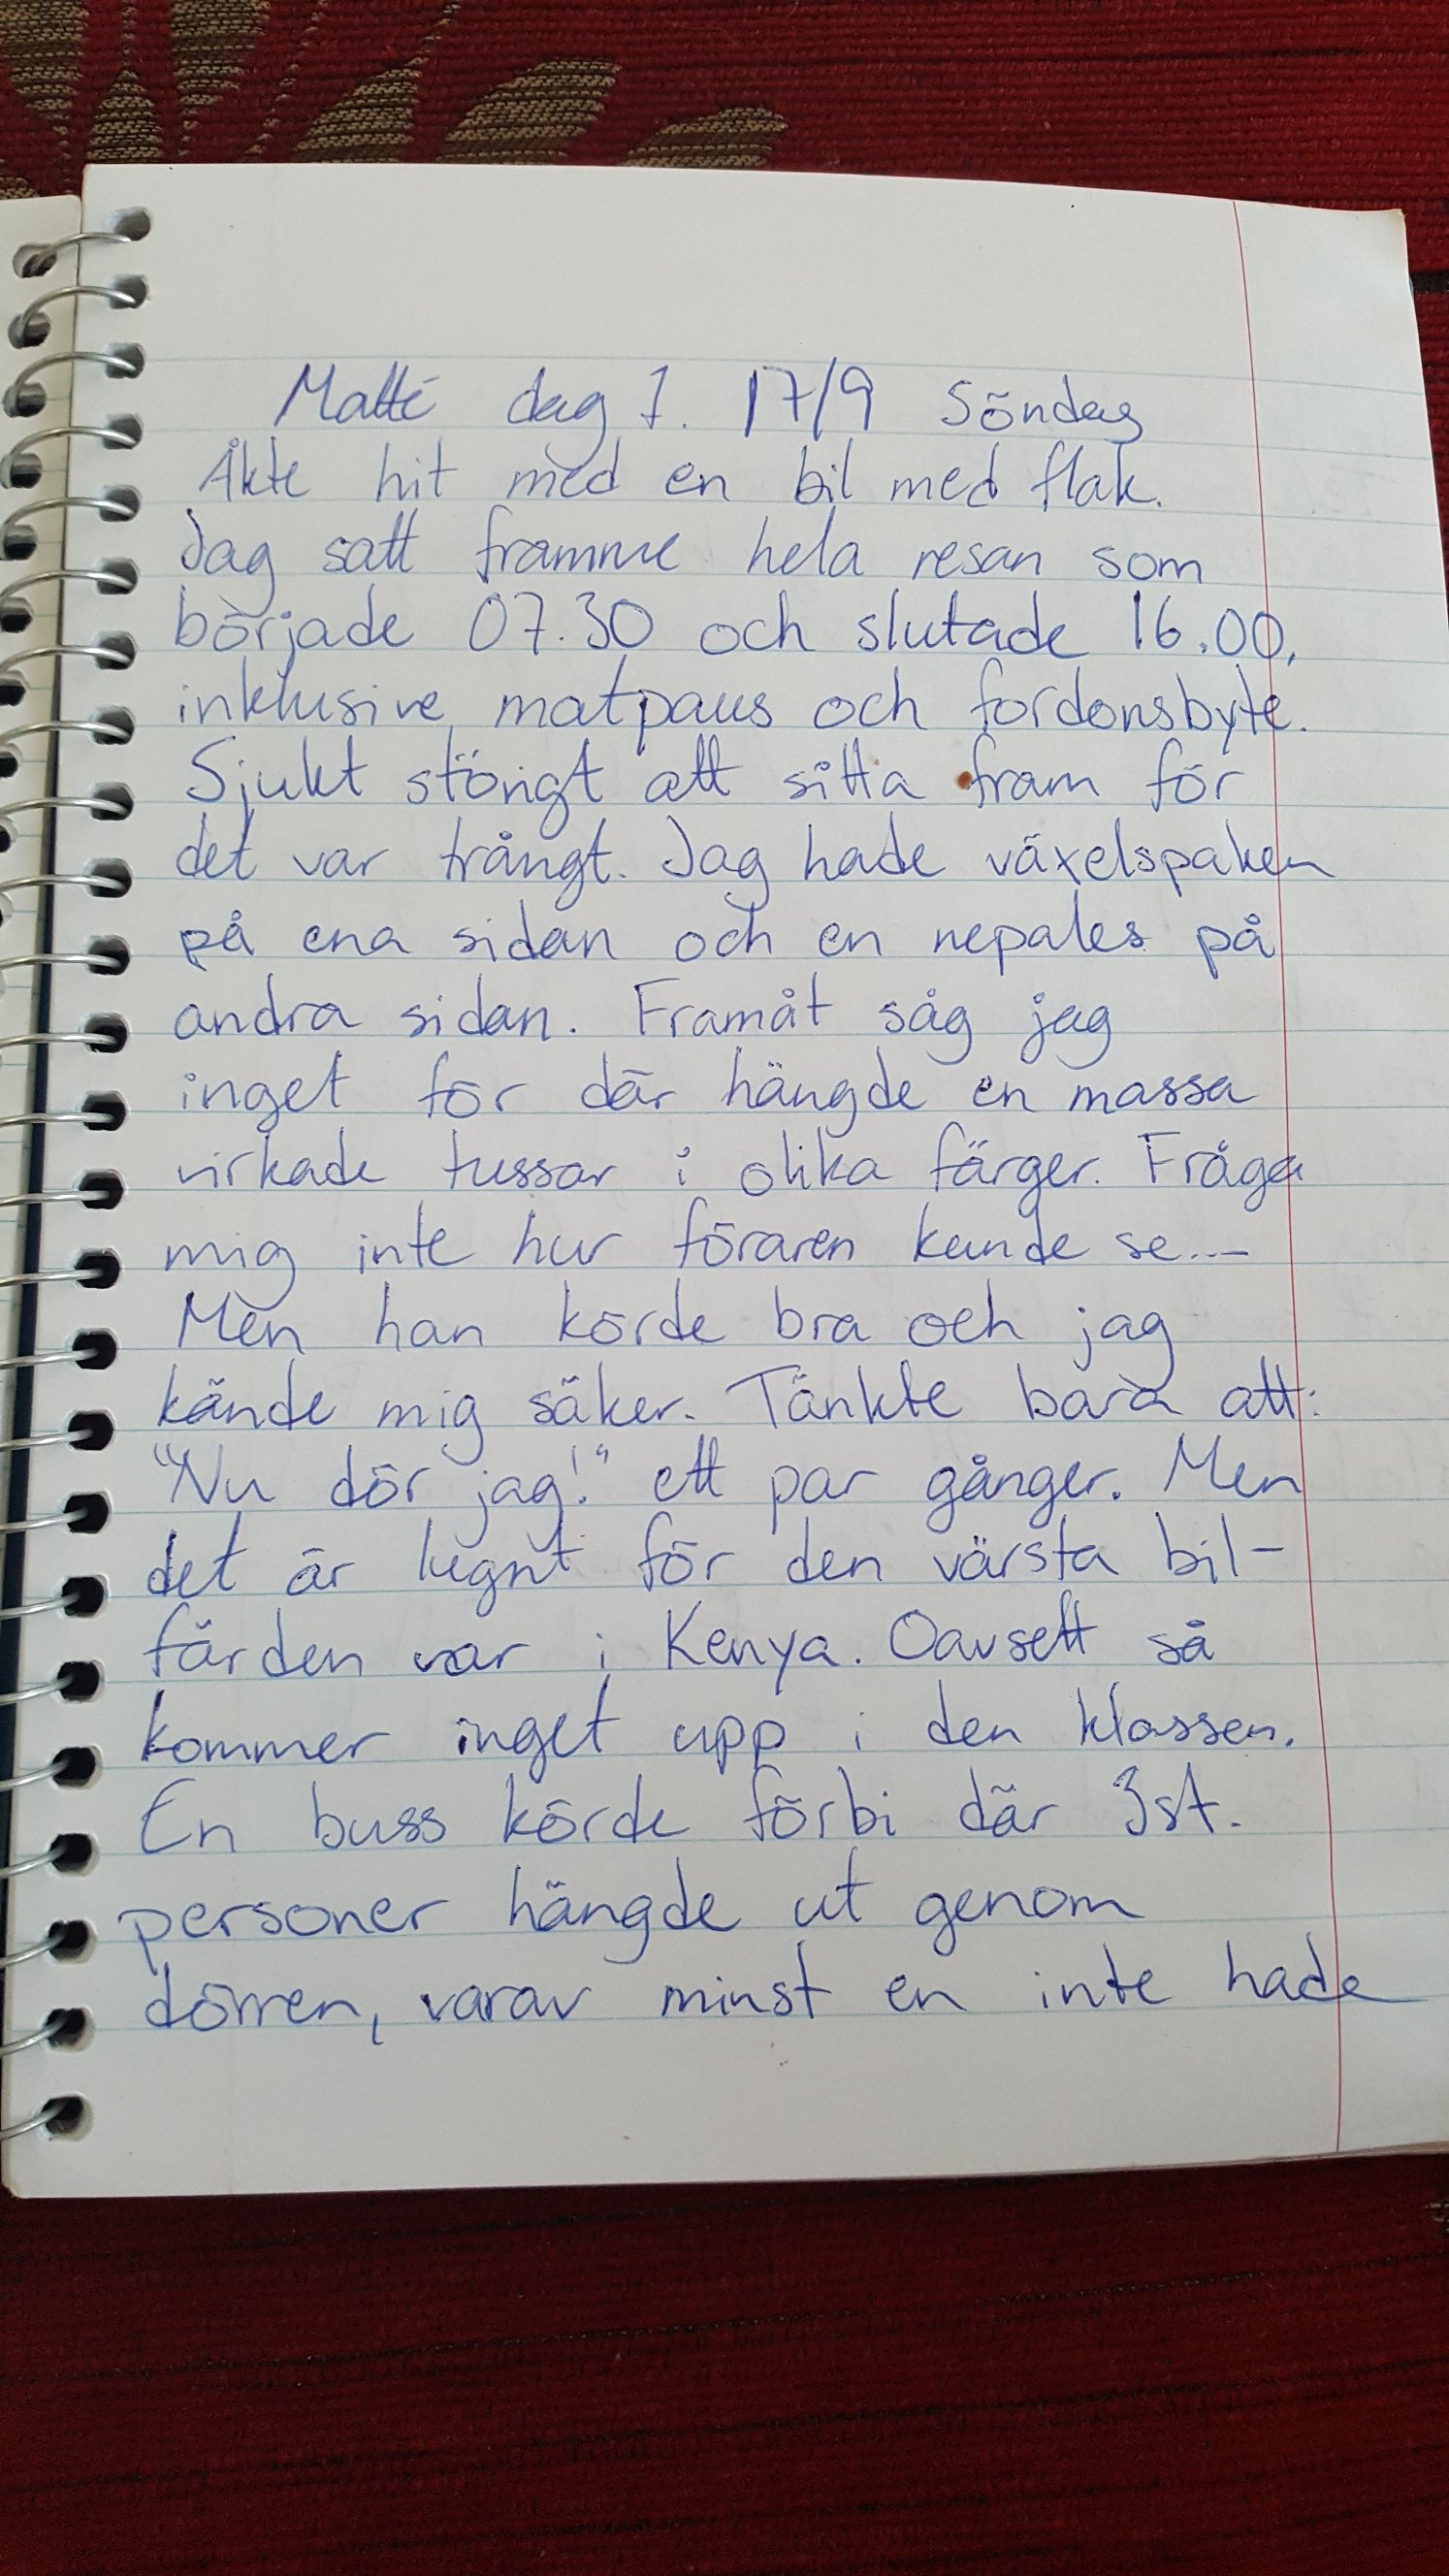 Matti dag 1. 17/9 Söndag
Åkte hit med en bil med flak.
Jag satt framme hela resan som
började 07.30 och slutade 16.00,
inklusive matpaus och fordonsbyte.
Sjukt störigt att sitta fram för
det var trångt. Jag hade växelspaken
på ena sidan och en nepales på
andra sidan. Framåt såg jag
inget för där hängde en massa
virkade tussar i olika färger. Fråga
mig inte hur föraren kunde se...
Men han körde bra och jag
kände mig säker. Tänkte bara att:
"Nu dör jag!" ett par gånger. Men
det är lugnt för den värsta bil-
färden var i Kenya. Oavsett så
kommer inget upp i den klassen.
En buss körde förbi där 3st.
personer hängde ut genom
dörren, varav minst en inte hade